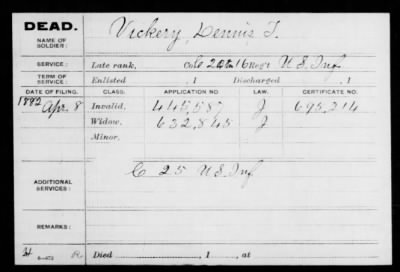 DEAD.
NAME OF SOLDIER: Vickery, Dennis T.
SERVICE: Late rank, Co. 16 Reg't U S Inf
TERM OF SERVICE: Enlisted , 1 Discharged , 1
DATE OF FILING. CLASS. APPLICATION NO. LAW. CERTIFICATE NO.
1882 Apr. 8 Invalid, 445,587 J 695,214
Widow, 632,845 J
Minor,
ADDITIONAL SERVICES: C 25 U S Inf
REMARKS:
6-472 Died , 1 , at